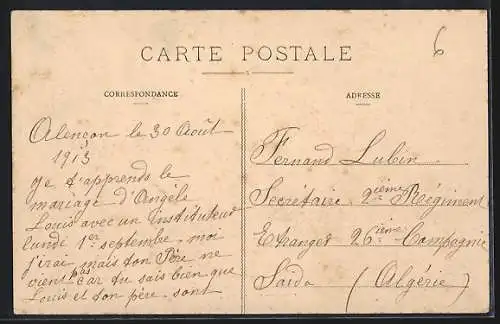 6
CARTE POSTALE
CORRESPONDANCE
Alençon le 30 Août
1913
Je t'apprends le
mariage d'Angèle
Louis avec un Instituteur
lundi 1er septembre. moi
j'irai mais ton Père ne
vient pas car tu sais bien que
Louis et ton père sont
ADRESSE
Fernand Lubin
Secrétaire 2ième Régiment
Etranger 26ième Compagnie
Saïda (Algérie)